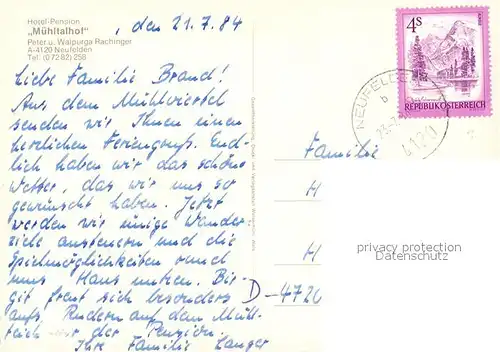 Hotel-Pension
„Mühltalhof"
Peter u. Walpurga Rachinger
A-4120 Neufelden
Tel. (07282) 258
, den 21.7.84
Liebe Familie Brand!
Aus dem Mühlviertel
senden wir Ihnen einen
herrlichen Feriengruß. End-
lich haben wir das schöne
Wetter, das wir uns so
gewünscht haben. Jetzt
werden wir einige Wander-
ziele ansteuern und die
Spielmöglichkeiten rund
ums Haus nutzen. Bir-
git freut sich besonders
aufs Rudern auf dem Mühl-
teich vor der Pension.
Ihre Familie Langer
4S
REPUBLIK ÖSTERREICH
NEUFELDEN
b
4120
Familie
H
H
D-4720
privacy protection
Datenschutz